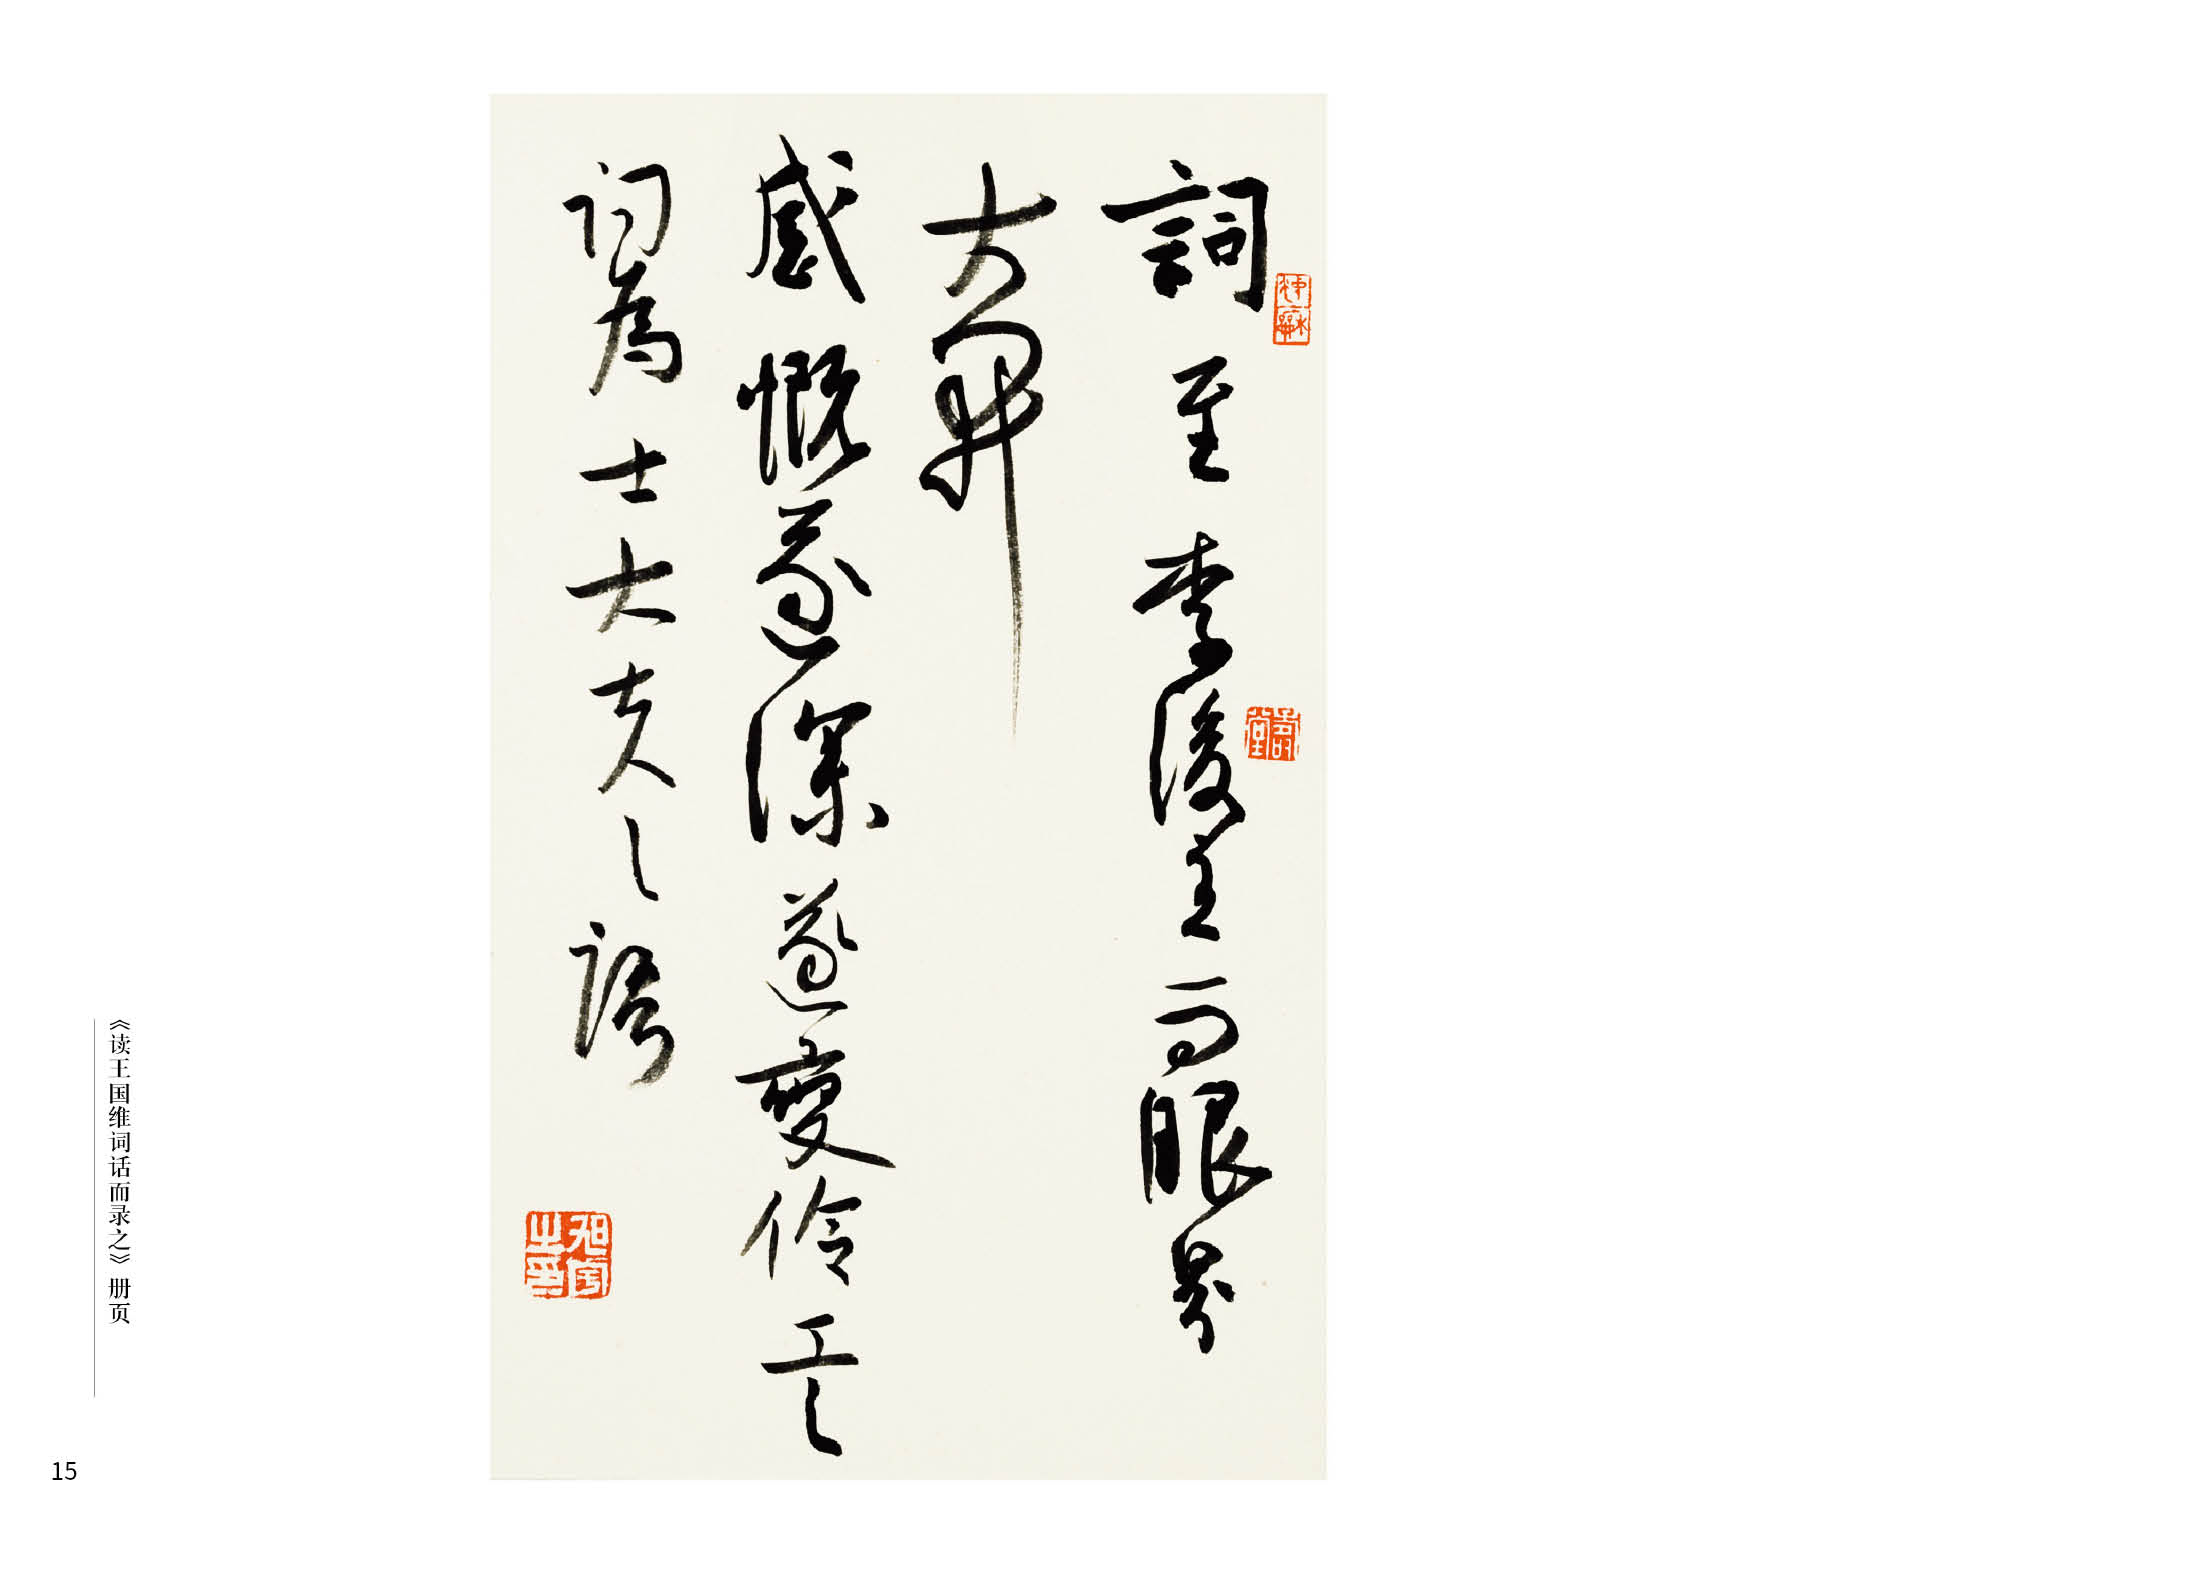 詞至李後主而眼界
大開
感慨遂深遂變伶工之
词為士大夫之語
旭宇之印
《读王国维词话而录之》册页
15